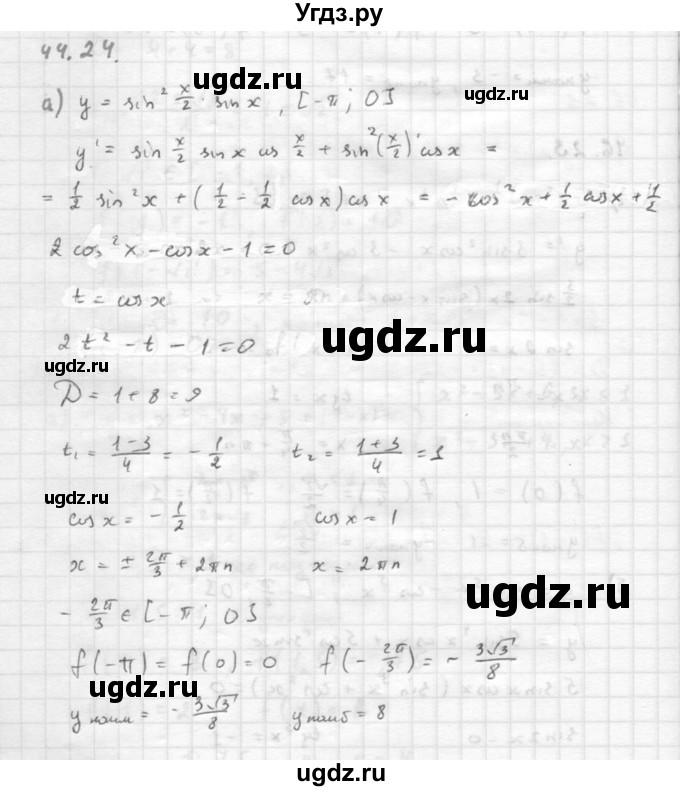 Угдз.ru
44.24.
ugdz.ru ugdz.ru
а) y = sin² x/2 · sin x , [-π; 0]
y' = sin x/2 sin x cos x/2 + sin²(x/2)' cos x =
= 1/2 sin² x + (1/2 - 1/2 cos x) cos x = - cos² x + 1/2 cos x + 1/2
2 cos² x - cos x - 1 = 0
t = cos x
ugdz.ru
2t² - t - 1 = 0
D = 1 + 8 = 9
t₁ = (1-3)/4 = - 1/2 t₂ = (1+3)/4 = 1
ugdz.ru
cos x = - 1/2 cos x = 1
x = ± 2π/3 + 2πn x = 2πn
- 2π/3 ∈ [-π; 0]
ugdz.ru
f(-π) = f(0) = 0 f(- 2π/3) = - 3√3/8
ugdz.ru
y наим = - 3√3/8 y наиб = 8
ugdz.ru